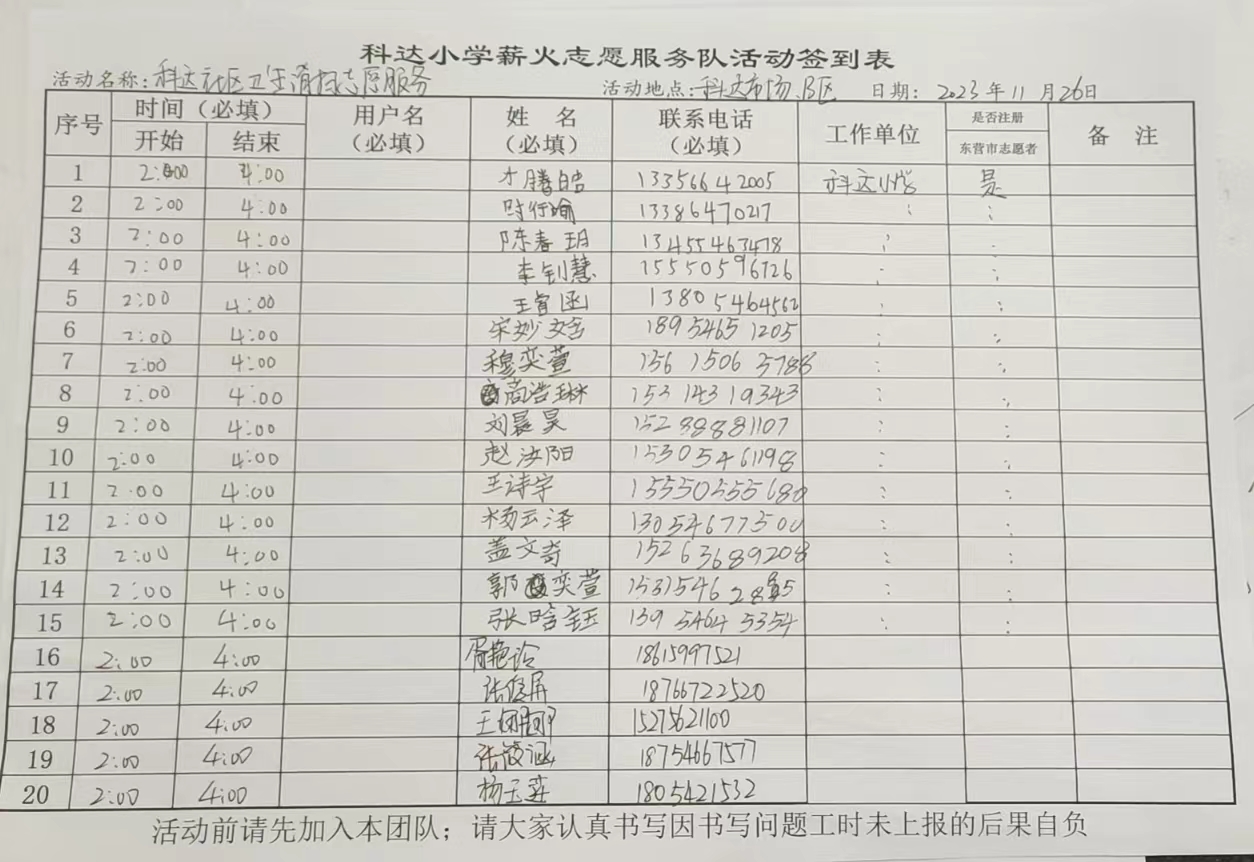 科达小学薪火志愿服务队活动签到表
活动名称：科达社区卫生清扫志愿服务 活动地点：科达市场B区 日期：2023年11月26日
序号 时间（必填） 用户名（必填） 姓名（必填） 联系电话（必填） 工作单位 是否注册东营市志愿者 备注
开始 结束
1 2:00 4:00 才腾皓 13356642005 科达小学 是
2 2:00 4:00 时行瑜 13386470217 : :
3 2:00 4:00 陈春玥 13455463478 : :
4 2:00 4:00 李钊慧 15550596726 : :
5 2:00 4:00 王睿函 13805464562 : :
6 2:00 4:00 宋妙 18954651205 : :
7 2:00 4:00 穆奕萱 15615063788 : :
8 2:00 4:00 高浩琳 15314319343 : :
9 2:00 4:00 刘晨昊 15288881107 : :
10 2:00 4:00 赵汝阳 15305461198 : :
11 2:00 4:00 王诗宇 15550555680 : :
12 2:00 4:00 杨云泽 13054677500 : :
13 2:00 4:00 盖文奇 15263689208 : :
14 2:00 4:00 郭奕萱 : :
15 2:00 4:00 张晗钰 13954645354 : :
16 2:00 4:00 胥艳玲 18615997521
17 2:00 4:00 张俊屏 18766722520
18 2:00 4:00 王 15275621100
19 2:00 4:00 张筱涵 18754667577
20 2:00 4:00 杨玉莲 1805421532
活动前请先加入本团队；请大家认真书写因书写问题工时未上报的后果自负